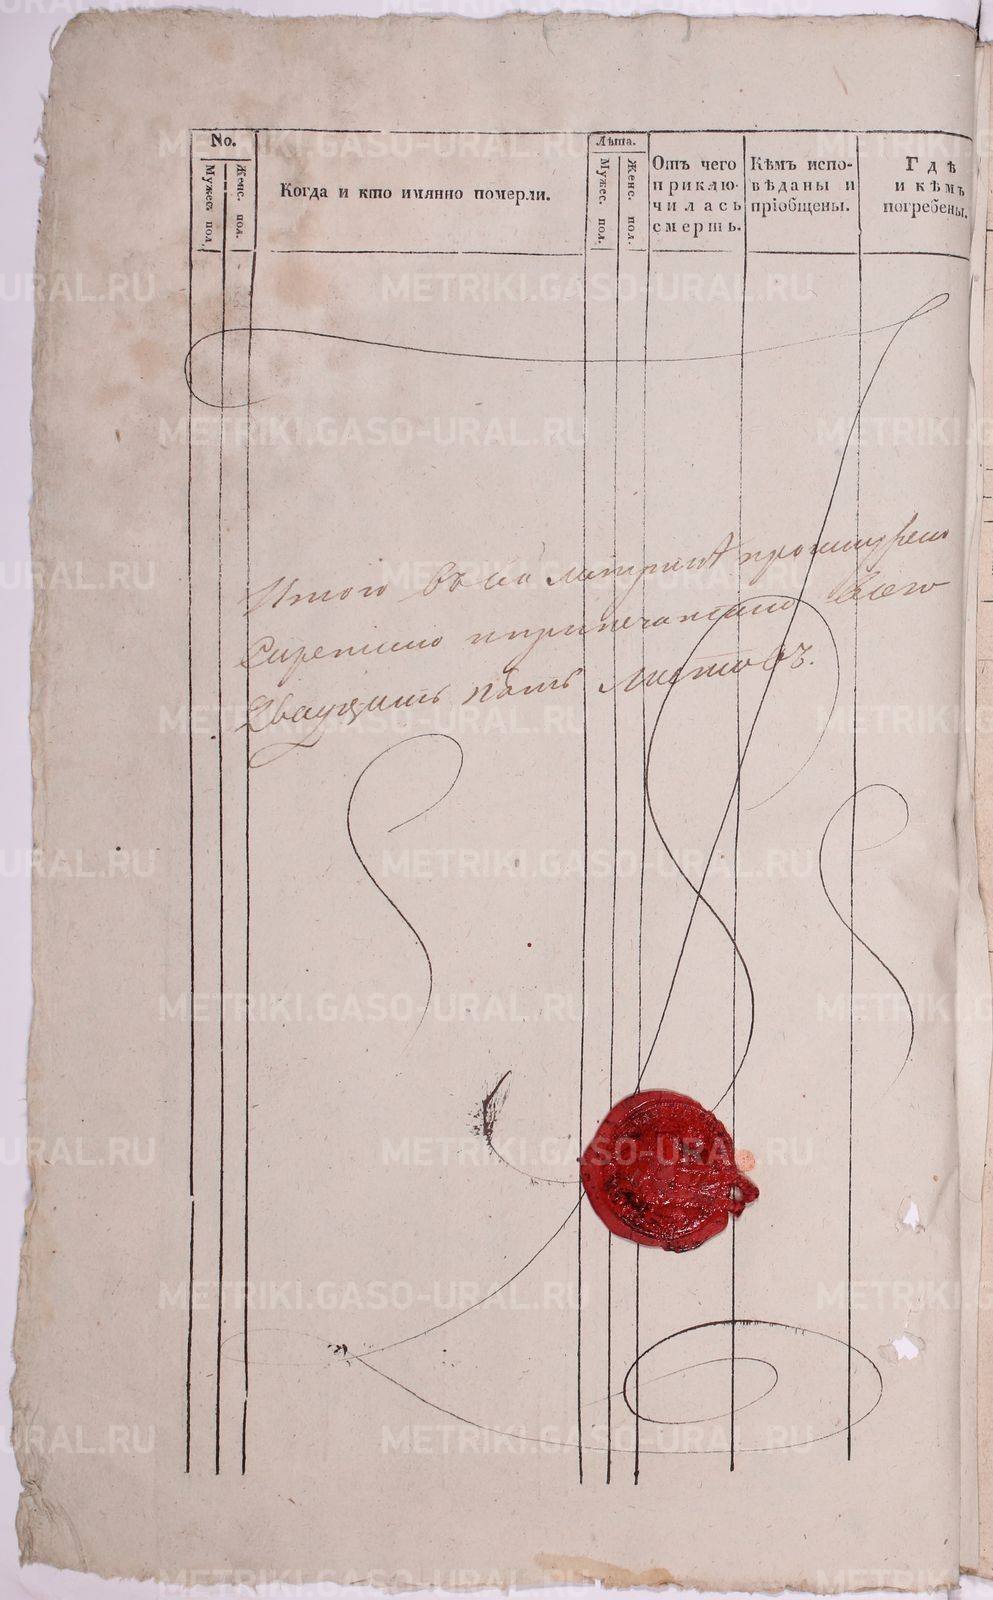 No.
Мужес. пол.
Женс. пол.
Когда и кто имянно померли.
Лѣта.
Мужес. пол.
Женс. пол.
Отъ чего
приклю-
чилась
смерть.
Кѣмъ испо-
вѣданы и
пріобщены.
Гдѣ
и кѣмъ
погребены.
Итого въ сей метрикѣ прошнурено
Скрепленно и припечатано всего
Двадцать пять листовъ.
METRIKI.GASO-URAL.RU